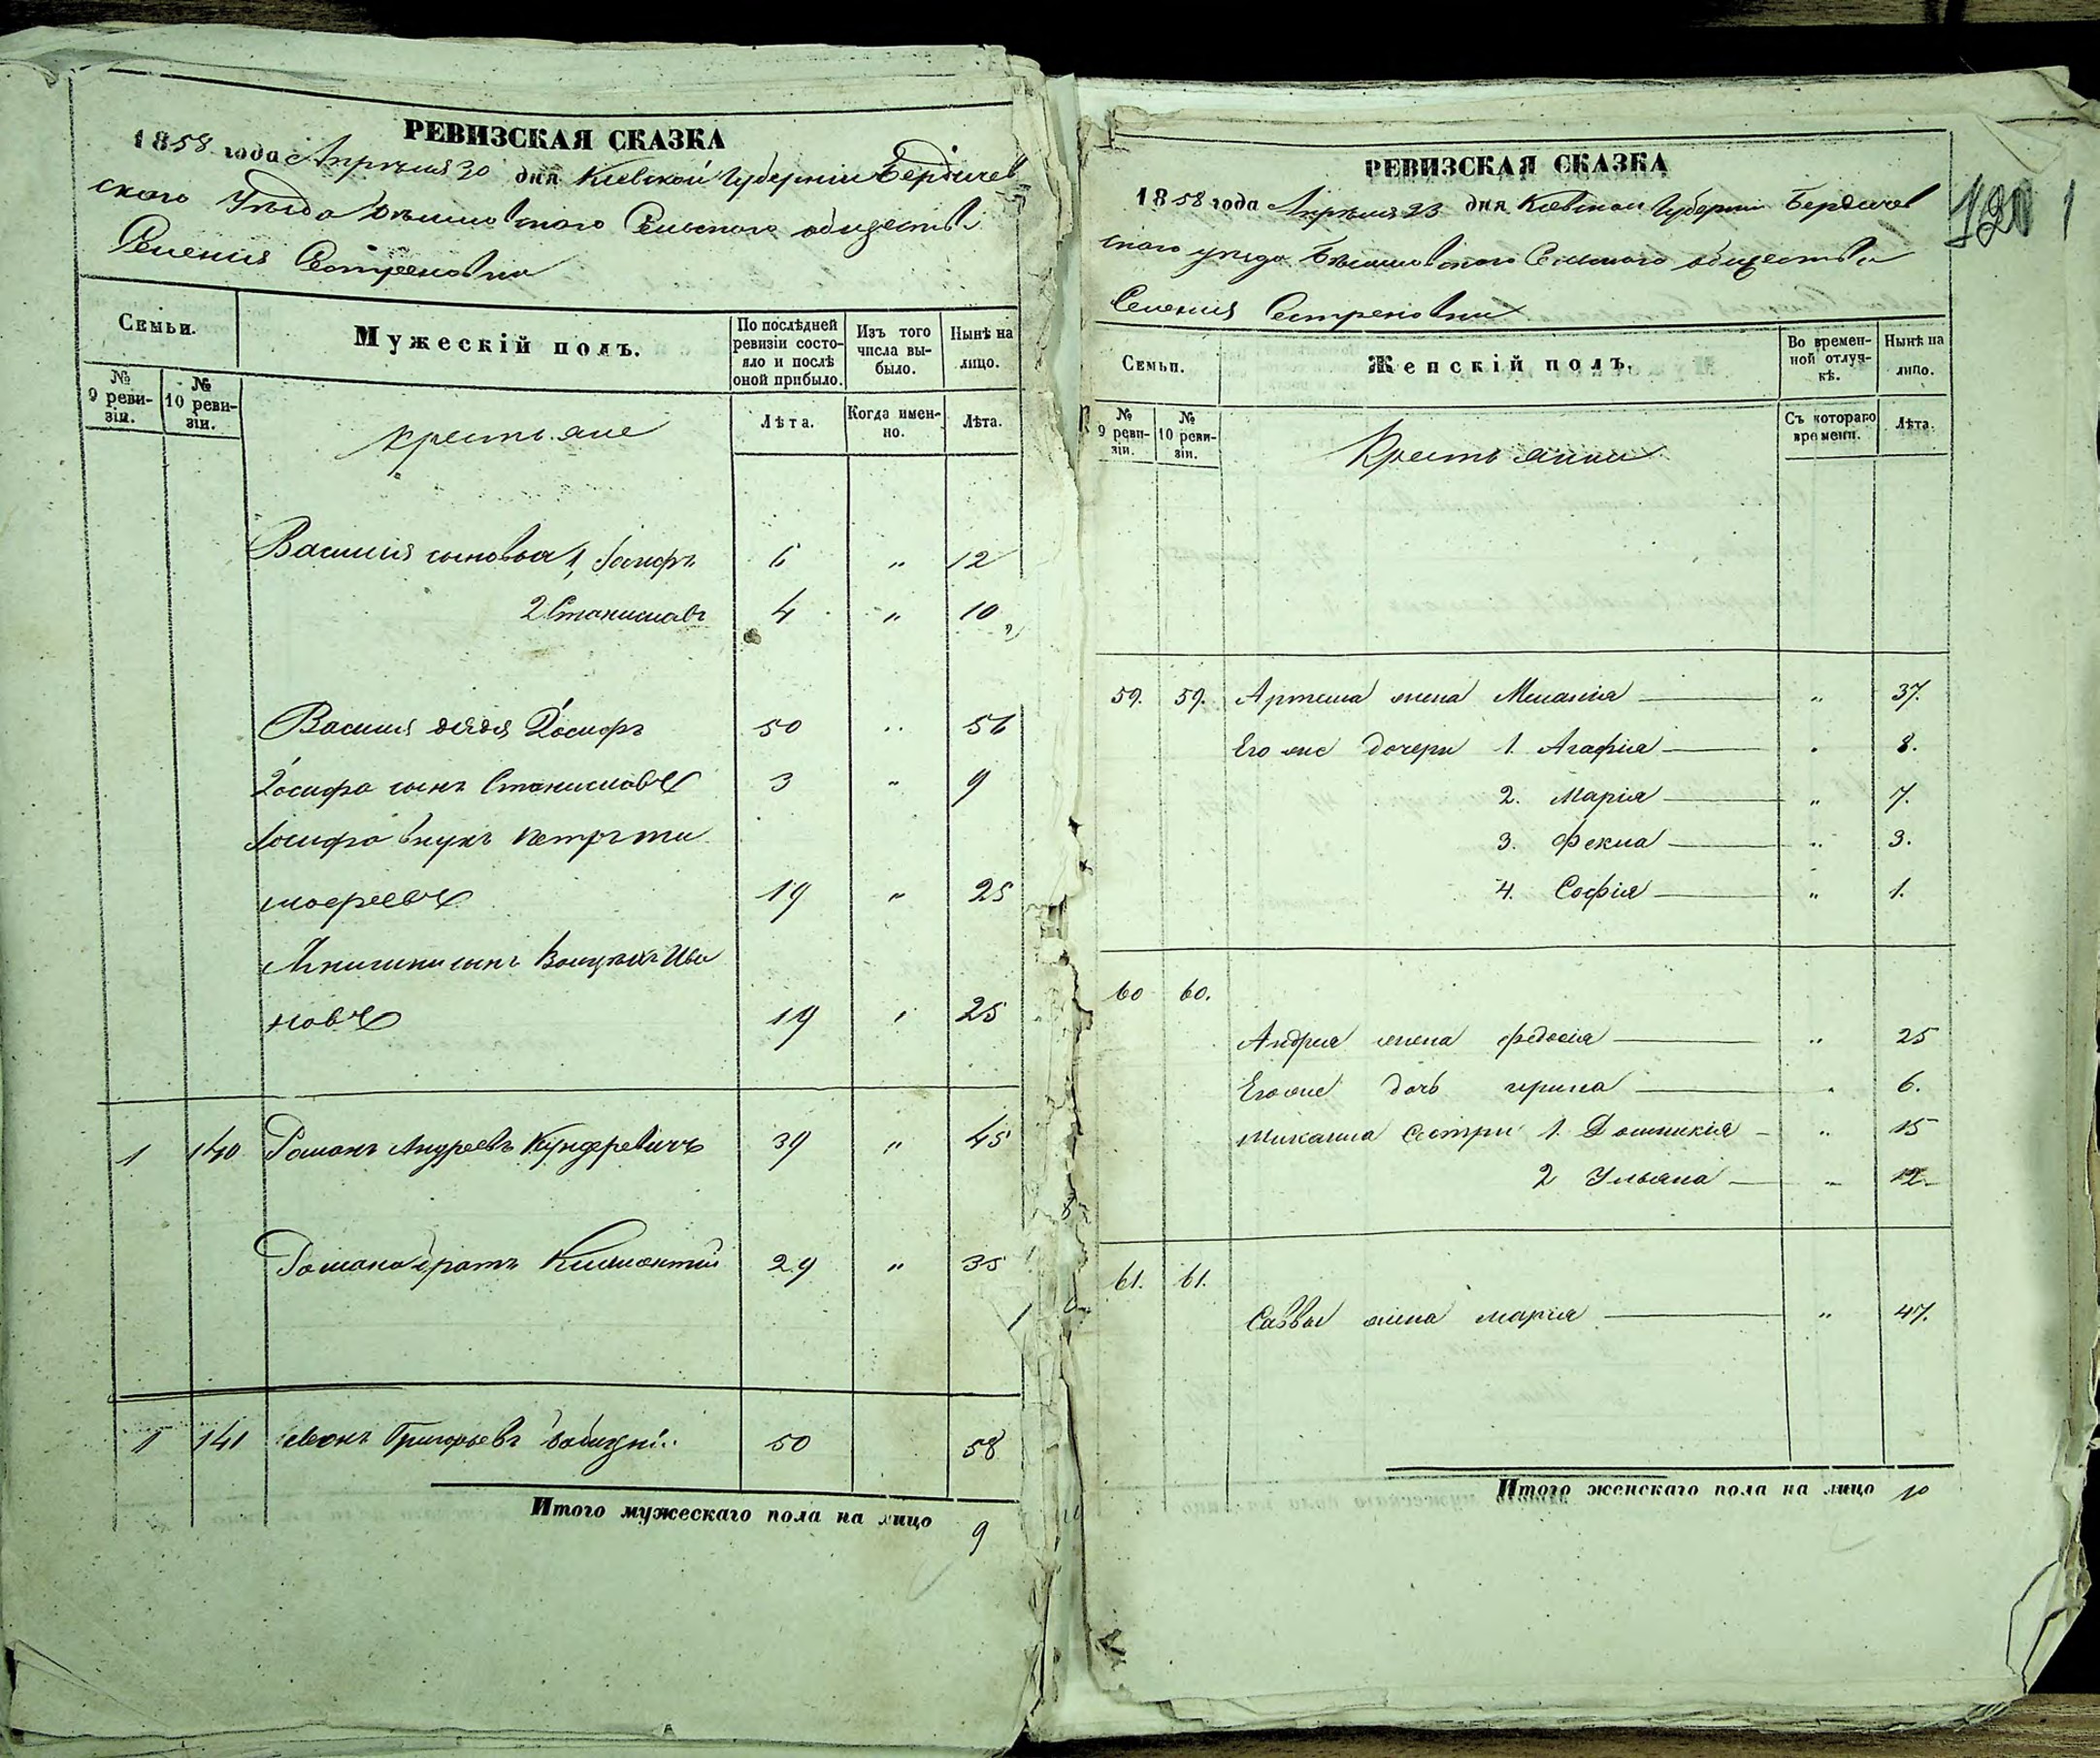 РЕВИЗСКАЯ СКАЗКА
1858 года Апрѣля 30 дня Кіевской Губерніи Бердичев
скаго Уѣзда Сельскаго общества
Селенія Сестреновки
Семьи.
Мужескій полъ.
По послѣдней ревизіи состояло и послѣ оной прибыло.
Изъ того числа выбыло.
Нынѣ на лицо.
№ 9 ревизіи.
№ 10 ревизіи.
крестьяне
Лѣта.
Когда именно.
Лѣта.
Василія сыновья 1, Іосифъ 6 " 12
2 Станиславъ 4 " 10
Василія дядя Іосифъ 50 " 56
Іосифа сынъ Станиславъ 3 " 9
Іосифа внукъ Петръ Ти
мофеевъ 19 " 25
сынъ Ива
новъ 19 " 25
1 140 Романъ Андреевъ Кундеревичъ 39 " 45
Романа братъ Климентій 29 " 35
1 141 Леонъ Григорьевъ 50 58
Итого мужескаго пола на лицо 9
120
РЕВИЗСКАЯ СКАЗКА
1858 года Апрѣля 23 дня Кіевской Губерніи Бердичев
скаго уѣзда Сельскаго общества
Селенія Сестреновки
Семьи.
Женскій полъ.
Во временной отлучкѣ.
Нынѣ на лицо.
№ 9 ревизіи.
№ 10 ревизіи.
Крестьянки
Съ котораго времени.
Лѣта.
59. 59. Артема жена Меланія " 37.
Его же дочери 1. Агафія " 8.
2. Марія " 7.
3. Фекла " 3.
4. Софія " 1.
60 60.
Андрея жена Федосія " 25
Его же дочь Ирина " 6.
Михаила сестры 1. Домникія " 15
2 Ульяна " 12
61. 61.
Саввы жена Марія " 47.
Итого женскаго пола на лицо 10